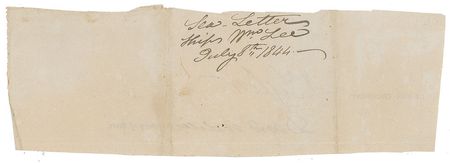 Sea-Letter
Ships Wm Lee
July 8th 1844